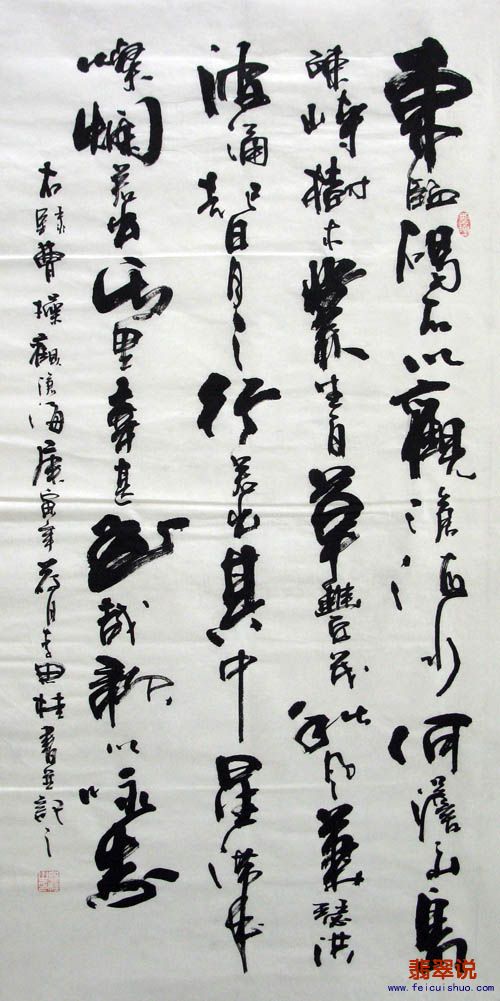 東臨碣石以觀滄海水何澹山島
竦峙樹木叢生百草豐茂秋風蕭瑟洪
波涌起日月之行若出其中星漢
燦爛若出其里幸甚至哉歌以詠志
右錄曹操觀滄海庚寅年荷月李典桂書並記之
翡翠说
www.feicuishuo.com